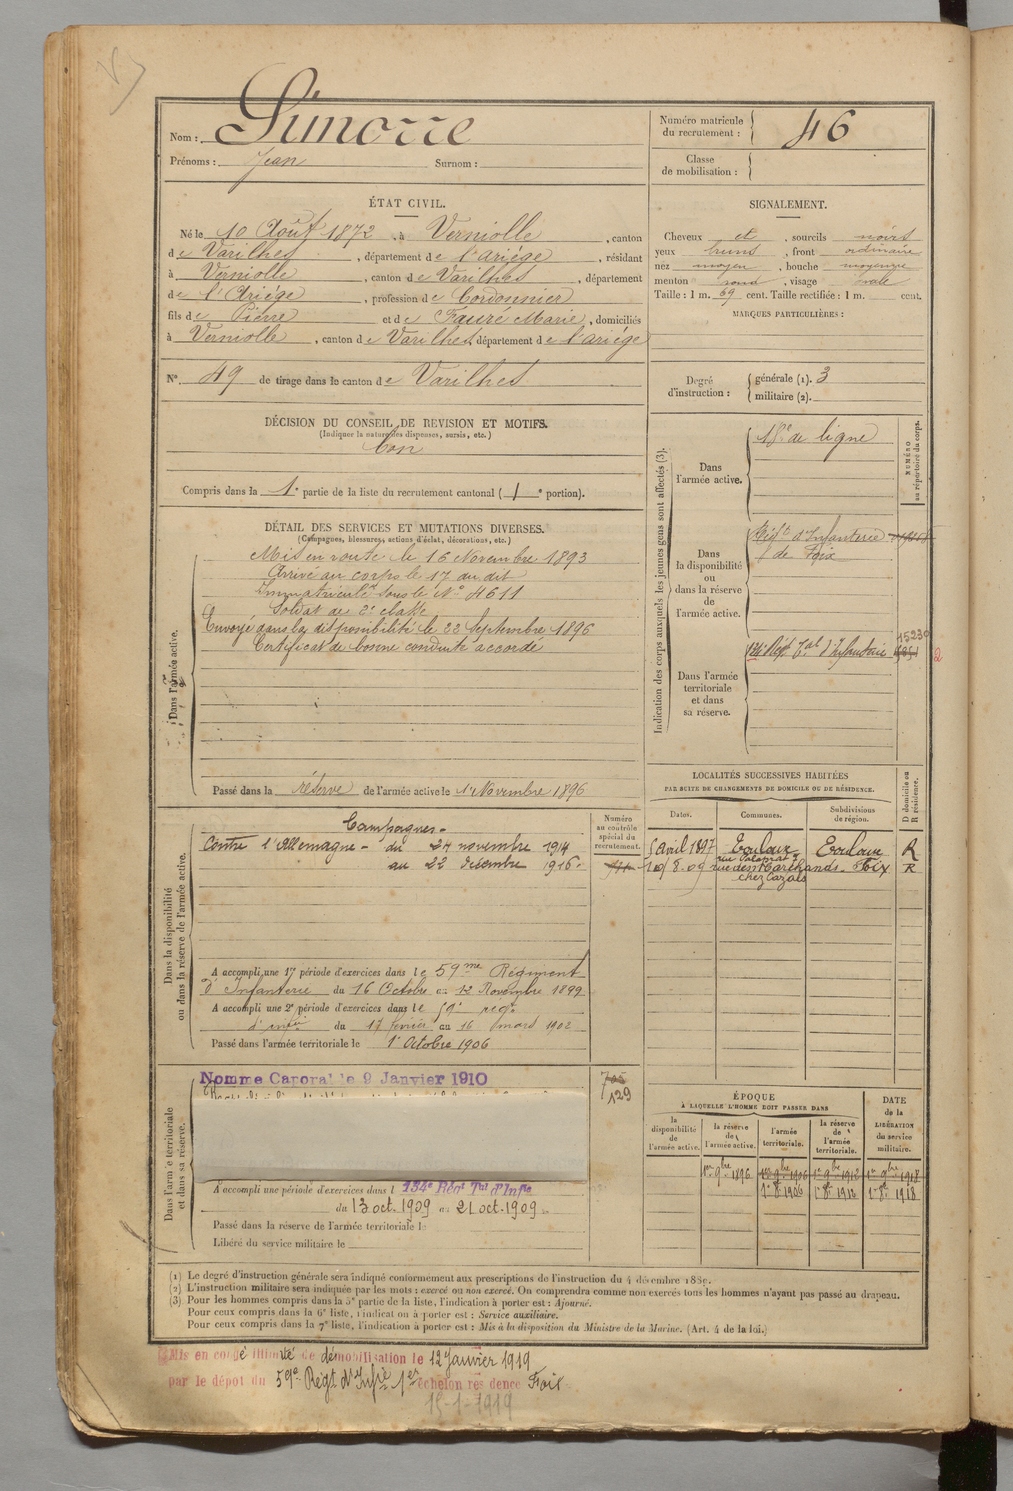 Nom : Simorre
Prénoms : Jean Surnom :
Numéro matricule du recrutement : 46
Classe de mobilisation :
ÉTAT CIVIL.
Né le 10 Août 1872, à Verniolle, canton
de Varilhes, département de l'Ariége, résidant
à Verniolle, canton de Varilhes, département
de l'Ariége, profession de Cordonnier
fils de Pierre et de Fauré Marie, domiciliés
à Verniolle, canton de Varilhes, département de l'ariége
N° 49 de tirage dans le canton de Varilhes
SIGNALEMENT.
Cheveux et, sourcils noirs
yeux bruns, front ordinaire
nez moyen, bouche moyenne
menton rond, visage ovale
Taille : 1 m. 69 cent. Taille rectifiée : 1 m. cent.
MARQUES PARTICULIÈRES :
Degré d'instruction : générale (1). 3
militaire (2).
DÉCISION DU CONSEIL DE REVISION ET MOTIFS.
(Indiquer la nature des dispenses, sursis, etc.)
bon
Compris dans la 1e partie de la liste du recrutement cantonal (1e portion).
DÉTAIL DES SERVICES ET MUTATIONS DIVERSES.
(Campagnes, blessures, actions d'éclat, décorations, etc.)
Dans l'armée active.
Mis en route le 16 Novembre 1893
Arrivé au corps le 17 au dit
Immatriculé sous le N° 4611
Soldat de 2e classe
Envoyé dans la disponibilité le 22 Septembre 1896
Certificat de bonne conduite accordé
Passé dans la réserve de l'armée active le 1er Novembre 1896
Indication des corps auxquels les jeunes gens sont affectés (3).
NUMÉRO au répertoire du corps.
Dans l'armée active.
18e de ligne
Dans la disponibilité ou dans la réserve de l'armée active.
Régt d'Infanterie
de Foix
Dans l'armée territoriale et dans sa réserve.
134e Régt Tal d'Infanterie
15230
2
LOCALITÉS SUCCESSIVES HABITÉES
PAR SUITE DE CHANGEMENTS DE DOMICILE OU DE RÉSIDENCE.
D domicile ou R résidence.
Dates. Communes. Subdivisions de région.
5 avril 1897 Toulouse Toulouse R
10/8.09 rue des Marchands Foix R
chez Cazals
Numéro au contrôle spécial du recrutement.
Dans la disponibilité ou dans la réserve de l'armée active.
Campagnes.
Contre l'Allemagne - du 24 novembre 1914
au 22 décembre 1916.
A accompli une 1re période d'exercices dans le 59me Régiment
d'Infanterie du 16 Octobre au 12 Novembre 1899
A accompli une 2e période d'exercices dans le 59e régt
d'infie du 17 février au 16 mars 1902
Passé dans l'armée territoriale le 1er Octobre 1906
Dans l'armée territoriale et dans sa réserve.
Nommé Caporal le 9 Janvier 1910
705
129
A accompli une période d'exercices dans l 134e Régt Tal d'Infie
du 13 oct. 1909 au 21 oct. 1909
Passé dans la réserve de l'armée territoriale le
Libéré du service militaire le
ÉPOQUE
A LAQUELLE L'HOMME DOIT PASSER DANS
DATE de la LIBÉRATION du service militaire.
la disponibilité de l'armée active. la réserve de l'armée active. l'armée territoriale. la réserve de l'armée territoriale.
1er 9bre 1896 1er 9bre 1906 1er 9bre 1912 1er 9bre 1918
1er 8. 1906 1er 8. 1912 1er 8. 1918
(1) Le degré d'instruction générale sera indiqué conformément aux prescriptions de l'instruction du 4 décembre 1889.
(2) L'instruction militaire sera indiquée par les mots : exercé ou non exercé. On comprendra comme non exercés tous les hommes n'ayant pas passé au drapeau.
(3) Pour les hommes compris dans la 5e partie de la liste, l'indication à porter est : Ajourné.
Pour ceux compris dans la 6e liste, l'indication à porter est : Service auxiliaire.
Pour ceux compris dans la 7e liste, l'indication à porter est : Mis à la disposition du Ministre de la Marine. (Art. 4 de la loi.)
Mis en congé illimité de démobilisation le 12 Janvier 1919
par le dépot du 59e Régt d'Infie 1er échelon résidence Foix
15-1-1919